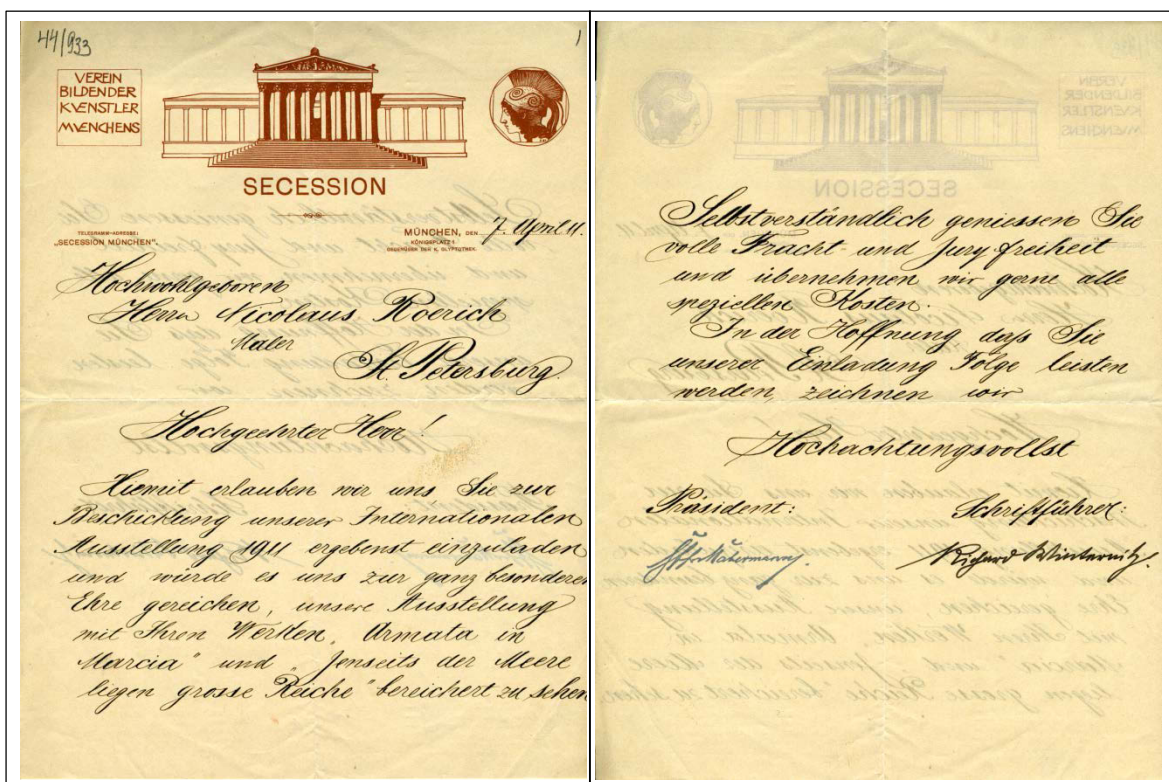 44/933
1
VEREIN
BILDENDER
KVENSTLER
MVENCHENS
SECESSION
TELEGRAMM-ADRESSE:
„SECESSION MÜNCHEN“.
MÜNCHEN, DEN 7. April 11.
KÖNIGSPLATZ 1
GEGENÜBER DER K. GLYPTOTHEK.
Hochwohlgeboren
Herrn Nicolaus Roerich
Maler
St. Petersburg.
Hochgeehrter Herr!
Hiemit erlauben wir uns Sie zur
Beschickung unserer Internationalen
Ausstellung 1911 ergebenst einzuladen
und würde es uns zur ganz besonderen
Ehre gereichen, unsere Ausstellung
mit Ihren Werken „Armata in
Marcia“ und „Jenseits der Meere
liegen grosse Reiche“ bereichert zu sehen
Selbstverständlich geniessen Sie
volle Fracht- und Jury freiheit
und übernehmen wir gerne alle
speziellen Kosten.
In der Hoffnung daß Sie
unserer Einladung Folge leisten
werden, zeichnen wir
Hochachtungsvollst
Präsident:
Schriftführer:
Richard Winternitz.